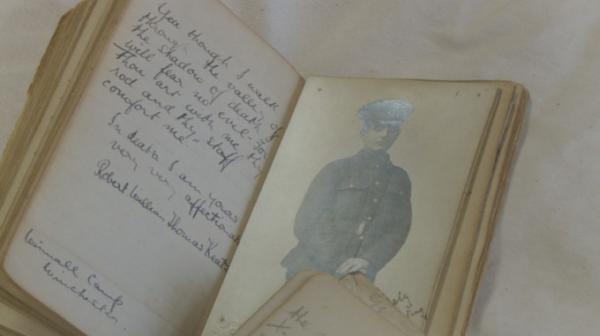 Yea though I walk
through the valley of
the shadow of death I
will fear no evil - for
thou art with me thy
rod and thy staff
comfort me
In death I am yours
very very affectionat
Robert William Thomas
Winnall Camp
Winchester.
the